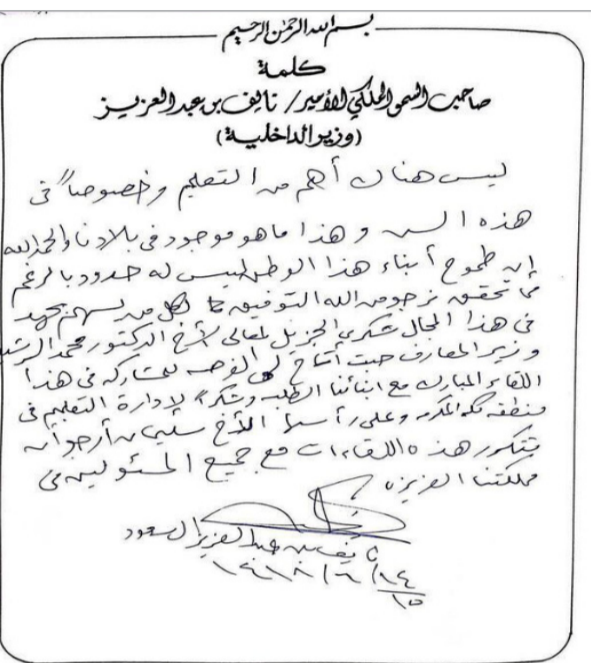 بسم الله الرحمن الرحيم
كلمة
صاحب السمو الملكي الأمير/ نايف بن عبد العزيز
(وزير الداخلية)
ليس هناك أهم من التعليم وخصوصاً في
هذه السن وهذا ما هو موجود في بلادنا والحمد لله
إن طموح أبناء هذا الوطن ليس له حدود بالرغم
مما تحقق نرجو من الله التوفيق لكل من يسهم بجهد
في هذا المجال شكري الجزيل لمعالي الأخ الدكتور محمد الرشيد
وزير المعارف حيث أتاح لي الفرصه للمشاركه في هذا
اللقاء المبارك مع ابنائنا الطلبه وشكراً لإدارة التعليم في
منطقه مكه المكرمه وعلى رأسها الأخ أرجو أن
تتكرر هذه اللقاءات مع جميع المسئولين في
مملكتنا العزيزه
نايف بن عبد العزيز آل سعود